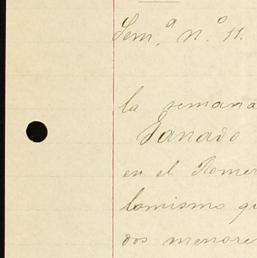 Sem.ª N.º 11.
la semana
Ganado
en el Romer
lo mismo qu
dos menore